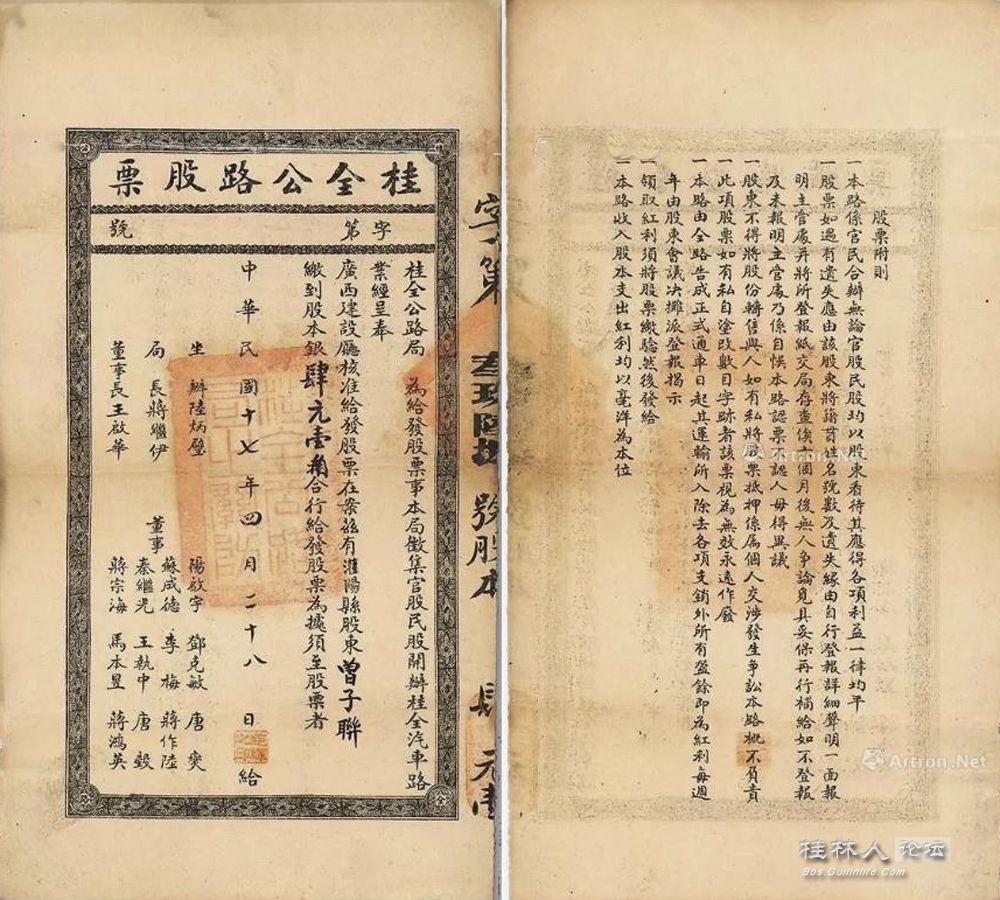 桂全公路股票
字第　號
桂全公路局　為給發股票事本局徵集官股民股開辦桂全汽車路
業經呈奉
廣西建設廳核准給發股票在案茲有灌陽縣股東曾子聯
繳到股本銀肆元壹角合行給發股票為據須至股票者
中華民國十七年四月二十八日給
坐辦陸炳璧
局長蔣繼伊
董事長王啟華
董事
陽啟宇　鄧克敏　唐爕
蘇咸德　李梅　蔣作陸
秦繼光　王執中　唐毅
蔣宗海　馬本昱　蔣鴻英
字第
號股本　肆元壹
股票附則
一本路係官民合辦無論官股民股均以股東看待其應得各項利益一律均平
一股票如遇有遺失應由該股東將籍貫姓名號數及遺失緣由自行登報詳細聲明一面報
明主管處并將所登報紙交局存查俟一個月後無人爭論覓具妥保再行補給如不登報
及未報明主管處乃係自悞本路認票不認人毋得異議
一股東不得將股份轉售與人如有私將股票抵押係屬個人交涉發生爭訟本路概不負責
一此項股票如有私自塗改數目字跡者該票視為無效永遠作廢
一本路由全路告成正式通車日起其運輸所入除去各項支銷外所有盈餘即為紅利每週
年由股東會議决攤派登報揭示
一領取紅利須將股票繳驗然後發給
一本路收入股本支出紅利均以毫洋為本位
Artron.Net
桂林人论坛
Bbs.Guilinlife.Com